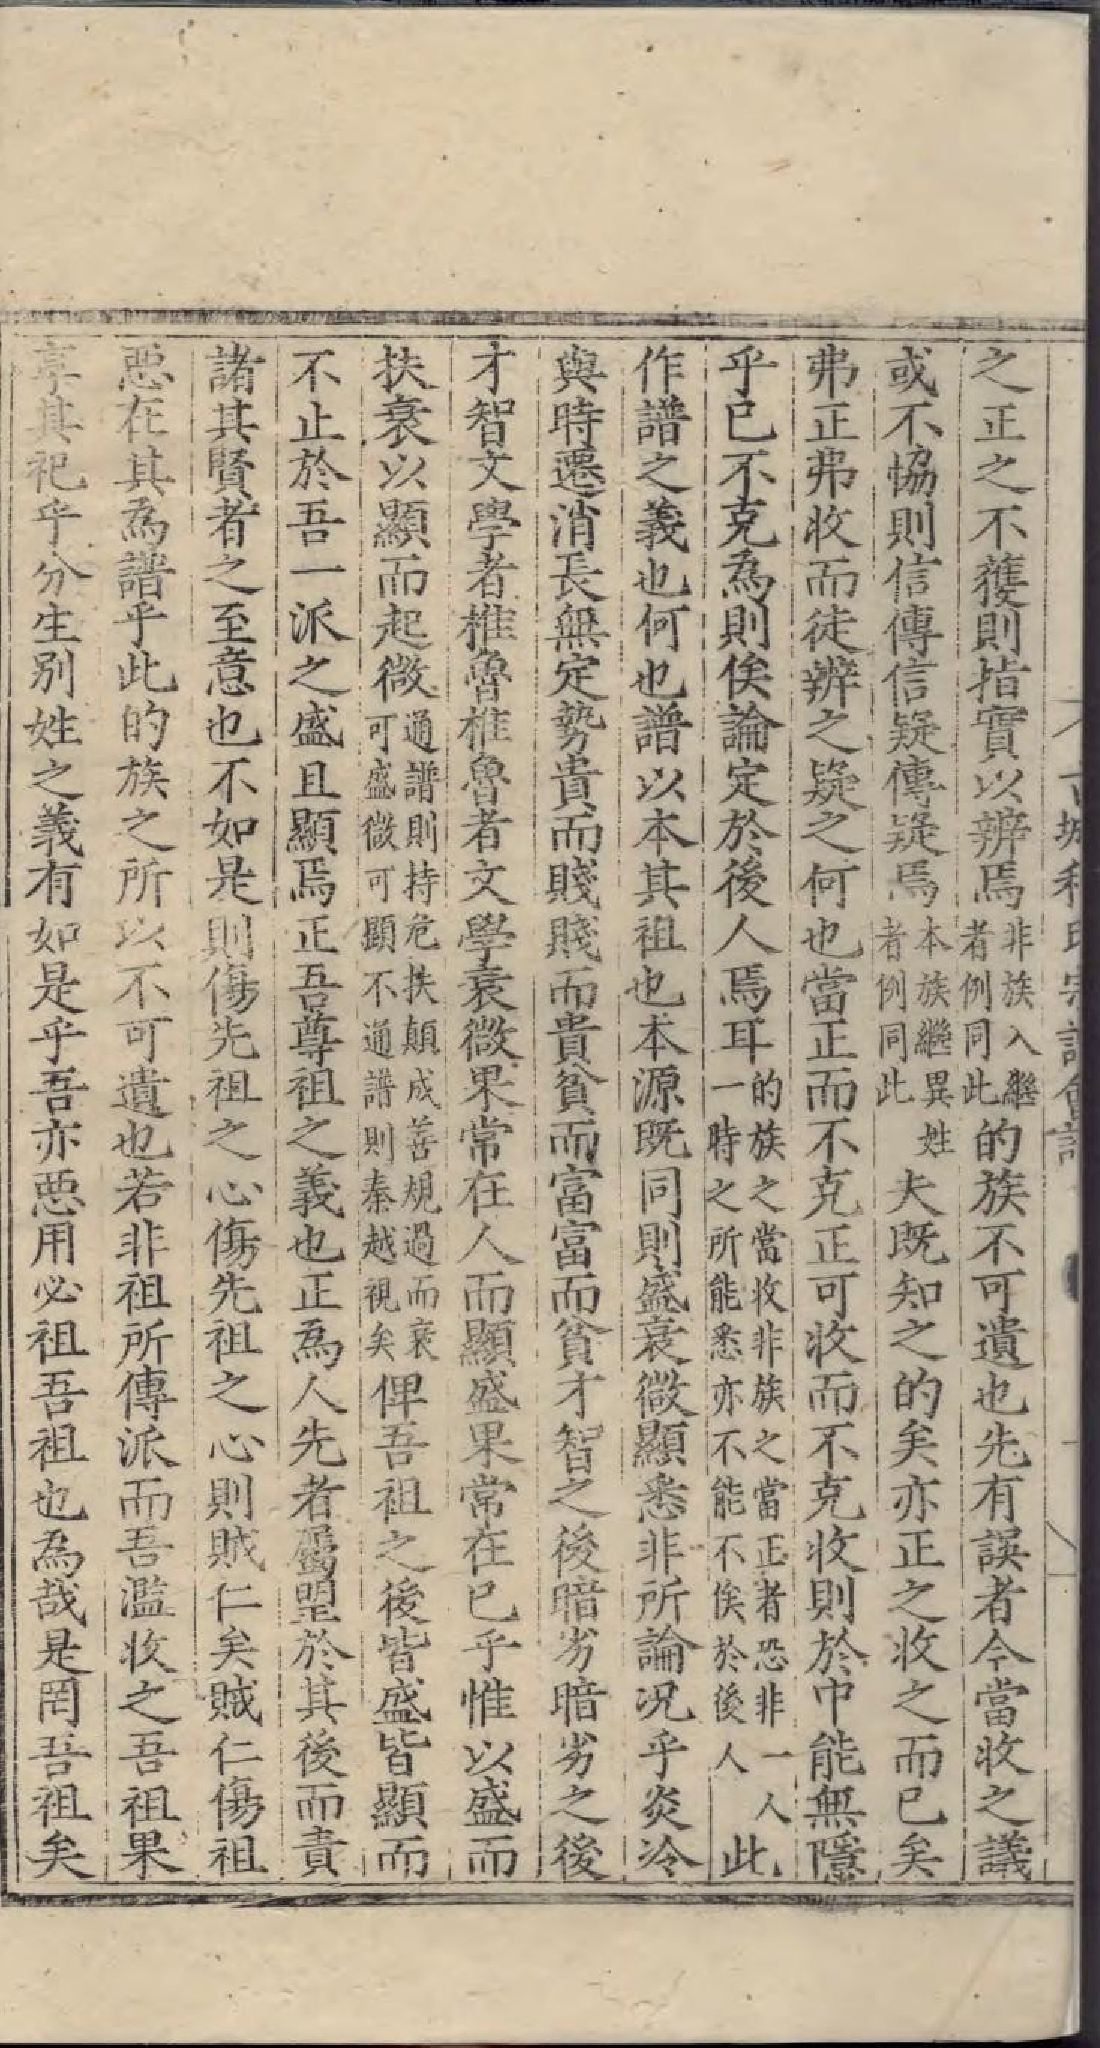 之正之不獲則指實以辨焉非族入繼者例同此的族不可遺也先有誤者今當收之議
或不恊則信傳信疑傳疑焉本族繼異姓者例同此夫既知之的矣亦正之收之而已矣
弗正弗收而徒辨之疑之何也當正而不克正可收而不克收則於中能無隱
乎已不克為則俟論定於後人焉耳的族之當收非族之當正者恐非一人一時之所能悉亦不能不俟於後人此
作譜之義也何也譜以本其祖也本源既同則盛衰微顯悉非所論况乎炎冷
與時遷消長無定勢貴而賤賤而貴貧而富富而貧才智之後暗劣暗劣之後
才智文學者椎魯椎魯者文學衰微果常在人而顯盛果常在已乎惟以盛而
扶衰以顯而起微通譜則持危扶顛成善規過而衰可盛微可顯不通譜則秦越視矣俾吾祖之後皆盛皆顯而
不止於吾一派之盛且顯焉正吾尊祖之義也正為人先者屬望於其後而責
諸其賢者之至意也不如是則傷先祖之心傷先祖之心則賊仁矣賊仁傷祖
惡在其為譜乎此的族之所以不可遺也若非祖所傳派而吾濫收之吾祖果
享其祀乎分生別姓之義有如是乎吾亦惡用必祖吾祖也為哉是罔吾祖矣